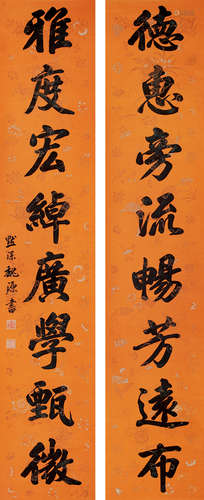 德惠旁流暢芳遠布
雅度宏綽廣學甄微
默深魏源書